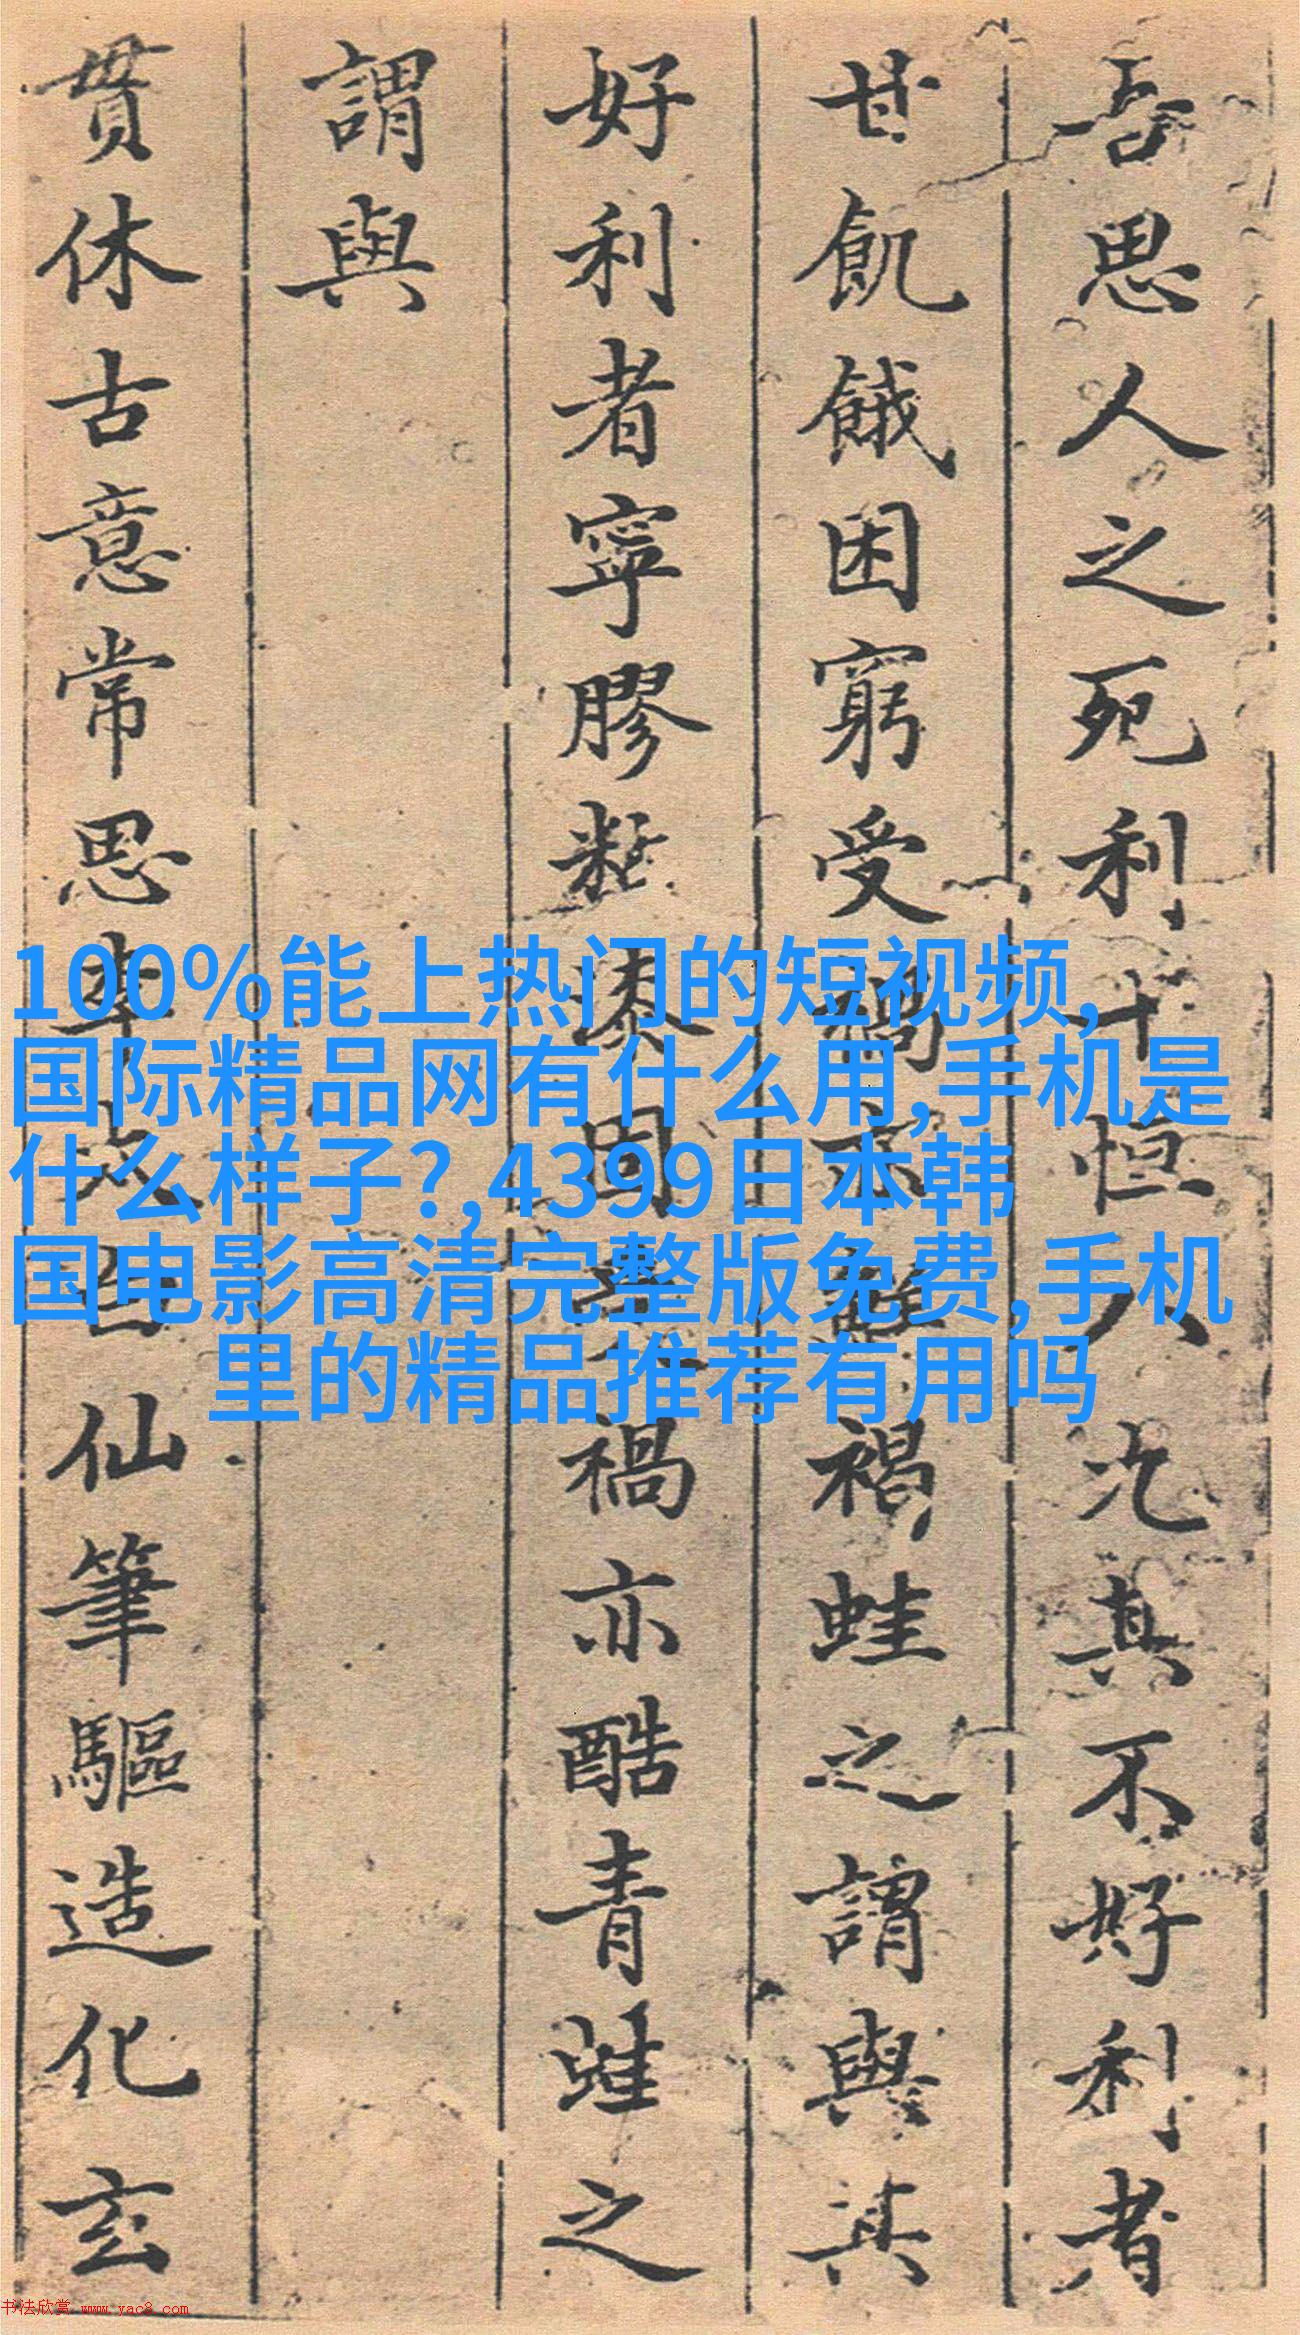 吾思人之死利十恒八九其不好利者
甘飢餓困窮受禍亦酷褐蛙之謂與其
好利者寧膠黏漆固受禍亦酷青蛙之
謂與
貫休古意常思李太白仙筆驅造化玄
100%能上热门的短视频,
国际精品网有什么用,手机是
什么样子?,4399日本韩
国电影高清完整版免费,手机
里的精品推荐有用吗
书法欣赏 www.yac8.com